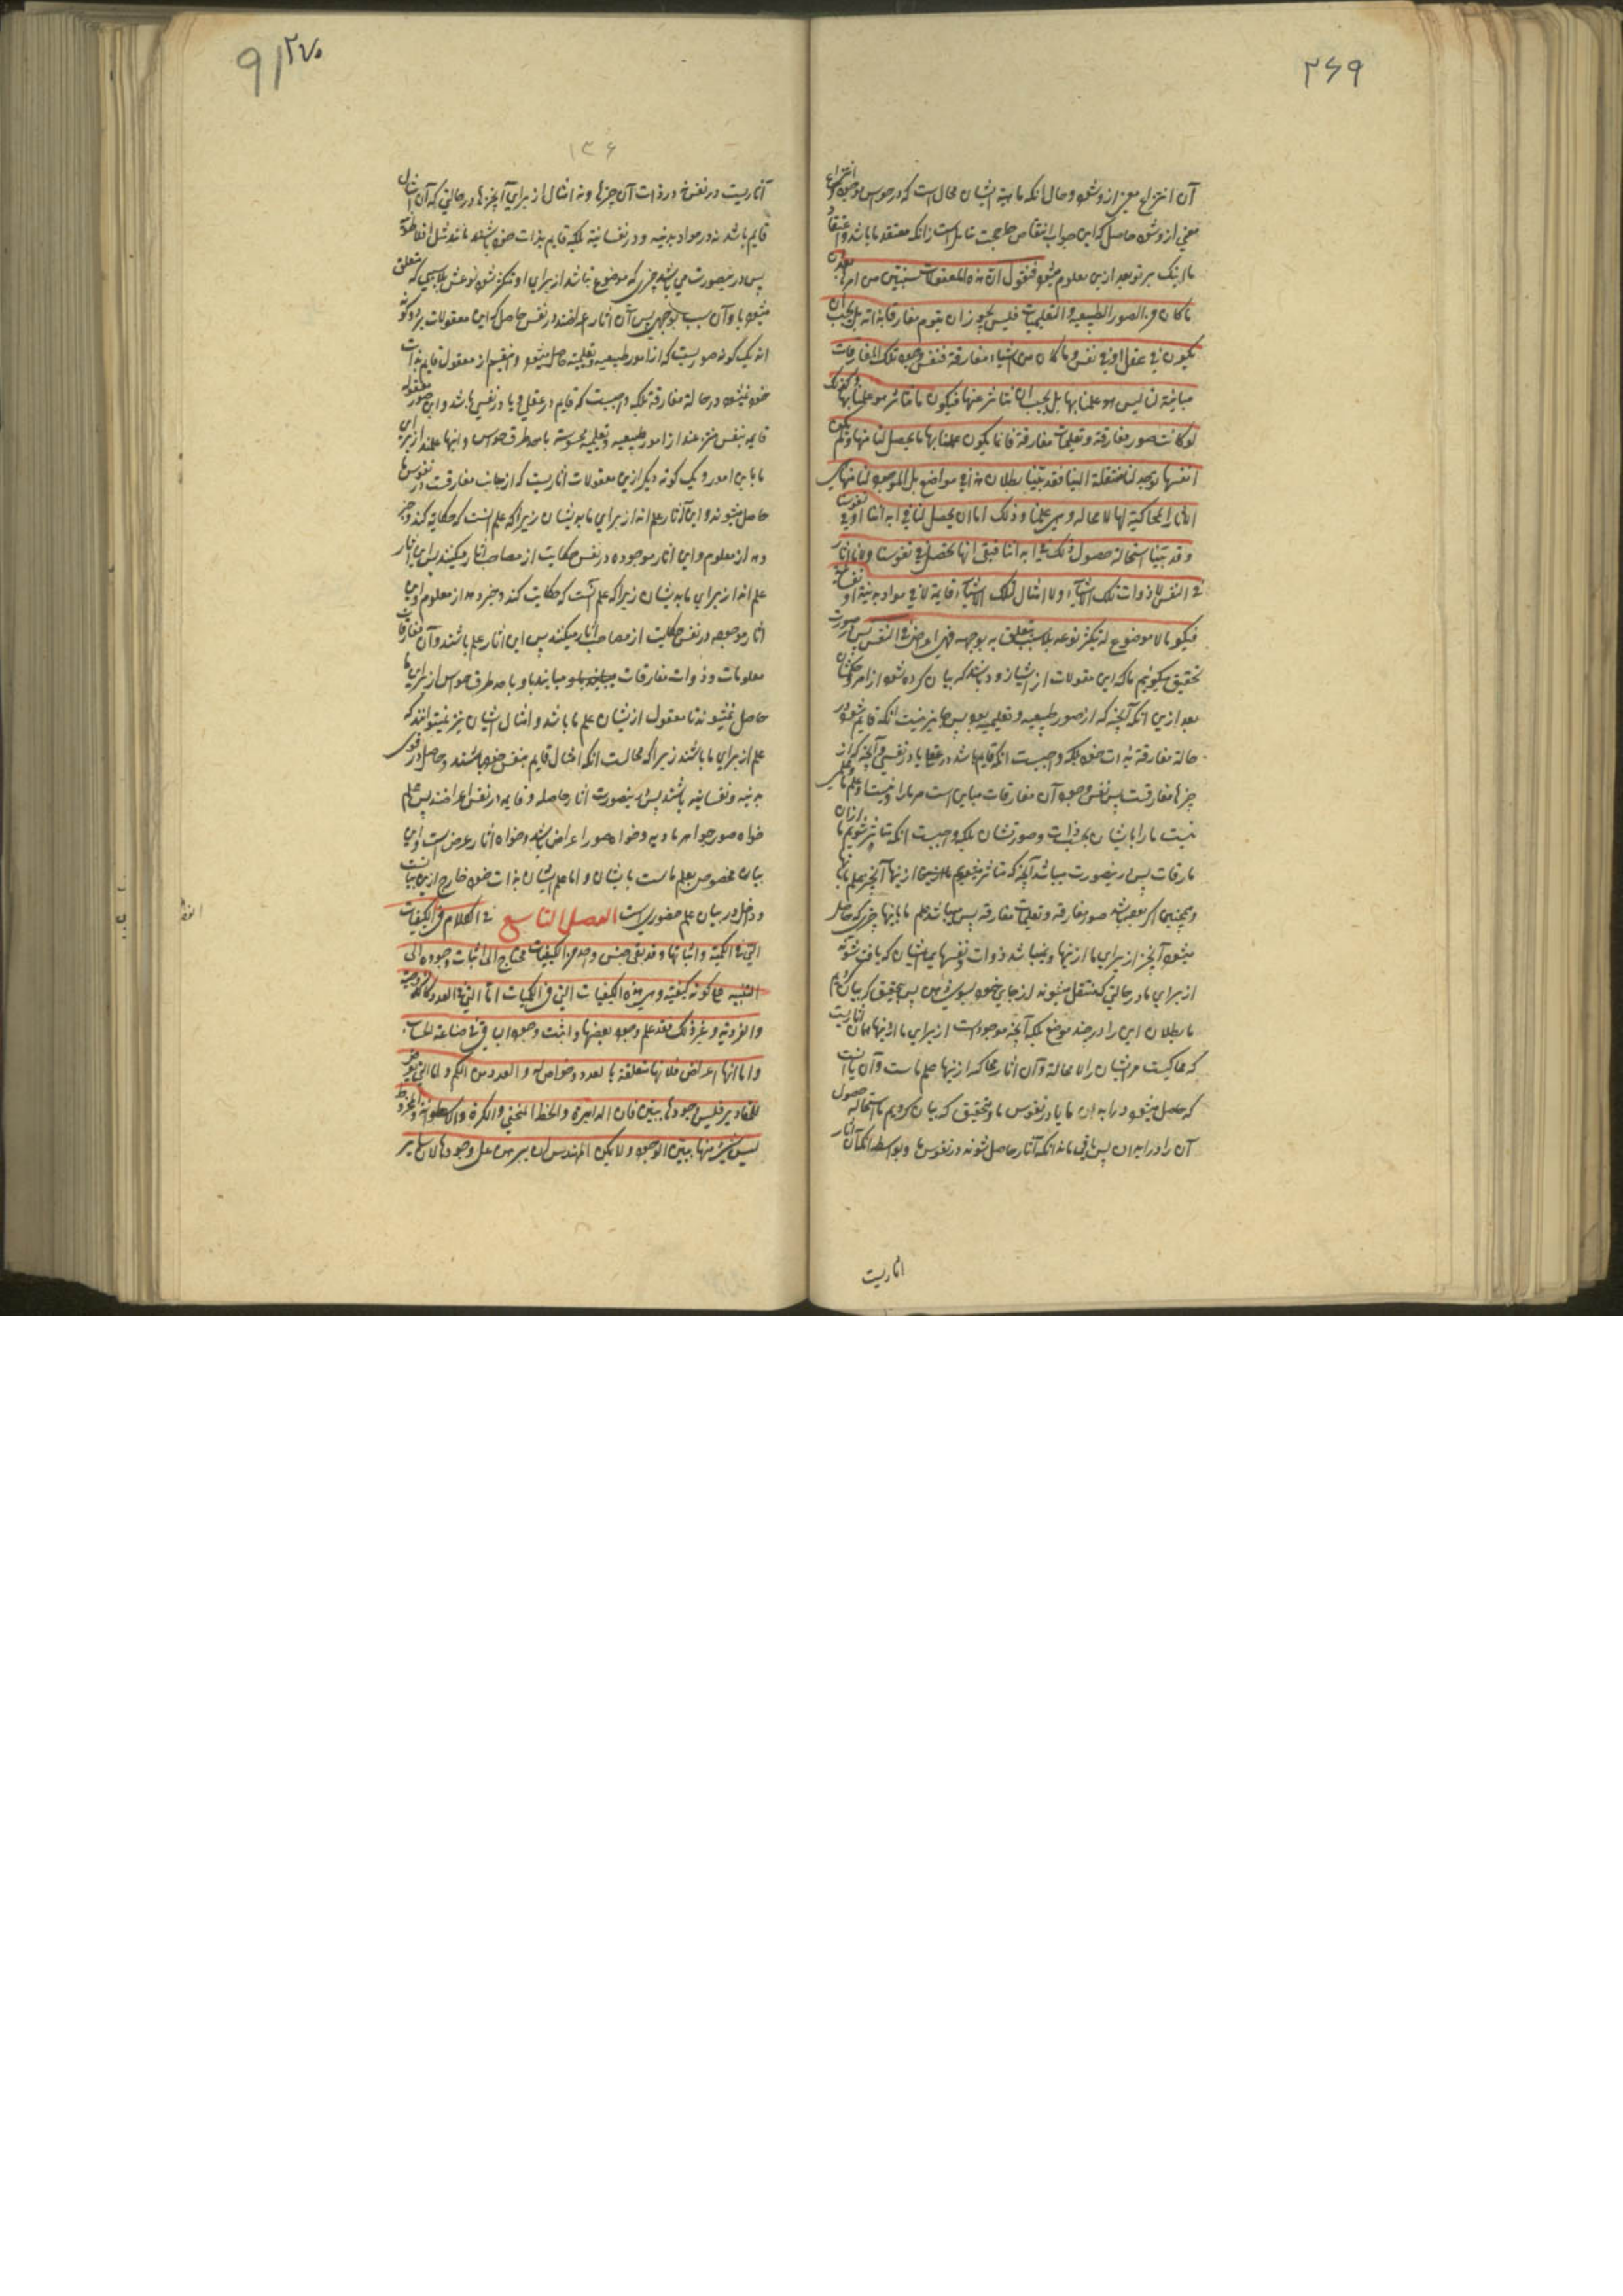 ۲۶۹
آن انتزاع معنی ازو شود و حال آنکه ماهیة ایشان محال است که در حواس بوجوه انتزاع
معنی ازو شود حاصل که این جواب انتقاض حل حجت قایل است زانکه معتقد ما باشد و اعتقاد
ما اینک بر تو بعد ازین معلوم میشود فنقول ان هذه المعقولات سنبین من امرها بعد ان
ما کان من الصور الطبیعیة و التعلیمیات فلیس یجوز ان یقوم مفارقا بذاته بل یجب ان
یکون فی عقل او فی نفس و ما کان من اشیاء مفارقة فنفس وجود تلک المفارقات
مباینة لنا لیس هو علمنا بها بل یجب ان نتاثر عنها فیکون ما نتاثر هو علمنا بها و کذلک
لو کانت صور مفارقة و تعلیمیات مفارقة فانما یکون علمنا بها ما یحصل لنا منها و لم یکون
انفسها توجد لنا منتقلة الینا فقد بینا بطلان هذا فی مواضع بل الموجود لنا منها هی
الآثار المحاکیة لها لا محالة و هی علمنا و ذلک اما ان یحصل لنا فی ابداننا او فی نفوسنا
و قد بینا استحالة حصول ذلک فی ابداننا فبقی انها تحصل فی نفوسنا و لانها آثار
فی النفس لا ذوات تلک الاشیاء و لا امثال لتلک الاشیاء قایمة لا فی مواد بدنیة او نفسانیة
فیکون ما لا موضوع له یتکثر نوعه بلا سبب یتعلق به بوجه فهی اعراض فی النفس پس درینصورت
تحقیق میکوئیم ما که این معقولات از ایشان زود باشد که بیان کرده شود از امر و حکمشان
بعد ازین آنکه آنچه که از صور طبیعیه و تعلیمیه بود پس جایز نیست آنکه قایم شود در
حالة مفارقة بذات خود بلکه واجبست آنکه قایم باشد در عقل یا در نفسی و آنچه که از
چیزها مفارقست پس نفس وجود آن مفارقات مباین است مر ما را و نیستا و علم ما
نیست ما را بایشان بحسب ذات و صورتشان بلکه واجبست آنکه متاثر شویم ما ازان
مفارقات پس درینصورت میباشد آنچه که متاثر میشویم ما ازینها آنچیز علم ما بآنها
و همچنین اگر بوده باشد صور مفارقه و تعلیمیات مفارقه پس میباشد علم ما باینها چیزی که حاصل
میشود آنچیز از برای ما ازینها و نمیباشد ذوات و نفسهای ایشان که یافت شوند
از برای ما در حالتی که منتقل میشوند از جای خود بسوی ما پس بتحقیق که بیان کردیم
ما بطلان این را در چند موضع بلکه آنچه موجود است از برای ما ازینها همان آثاریست
که محاکیست مر ایشان را لا محالة و آن آثار محاکه ازینها علم ماست و آن یا آنست
که حاصل میشود در ابدان ما یا در نفوس ما و بتحقیق که بیان کردیم ما استحاله حصول
آن را در ابدان پس باقی ماند آنکه آثار حاصل شوند در نفوس ما و بواسطه آنکه آن آثار
آثاریست
۹/۲۷۰
۱۳۶
آثاریست در نفس نه در ذات آن چیزها و نه امثال از برای آنچیزها در حالتی که آن امثال
قایم باشد نه در مواد بدنیه و در نفسانیة بلکه قایم بذات خود باشند مانند مثل افلاطون
پس درینصورت می باشد چیزی که موضوع نباشد از برای او متکثر شود نوعش بلا سببی که متعلق
میشود باو آن سبب بوجهی پس آن آثار اعراضند در نفس حاصل که این معقولات بر دو گونه
اند یک گونه صوریست که از امور طبیعیه و تعلیمیة حاصل میشود و اینقسم از معقول قایم بذات
خود نمیشود در حالة مفارقة بلکه واجبست که قایم در عقلی و یا در نفسی باشد و این صور معقوله
قایمه بنفس منتزعند از امور طبیعیه و تعلیمیه محسوسة بامداد طرف حواس و اینها علمند از برای
ما باین امور و یک گونه دیگر ازین معقولات آثاریست که از جانب مفارقست در نفوس ما
حاصل میشوند و این آثار علم اند از برای ما بدیشان زیراکه علم آنست که حکایة کند و خبر
دهد از معلوم و این آثار موجوده در نفس حکایت از مصاحب آثار میکنند پس این آثار
علم اند از برای ما بدیشان زیراکه علم آنست که حکایت کند و خبر دهد از معلوم و این
آثار موجوده در نفس حکایت از مصاحب آثار میکنند پس این آثار علم باشند و آن مفارقات
معلومات و ذوات مفارقات مبایند باو و بامداد طرف حواس از برای ما
حاصل نمیشوند تا معقول ازیشان علم ما باشد و امثال ایشان نیز نمیتوانند که
علم از برای ما باشند زیراکه محالست آنکه امثال قایم بنفس خود باشند و حاصل در قوی
بدنیه و نفسانیه باشند پس درینصورت آثار حاصله و قایمه در نفس اعراضند پس علم
خواه صور جواهر مادیه و خواه صور اعراض باشد و خواه آثار عرض است و این
بیان مخصوص بعلم ماست بایشان و اما علم ایشان بذات خود خارج ازین بیانست
و داخل در بیان علم حضوریست الفصل التاسع فی الکلام فی الکیفیات
التی فی الکمیة و اثباتها و قد بقی جنس واحد من الکیفیات محتاج الی اثبات وجوده الی
التنبیه علی کونه کیفیة و هی هذه الکیفیات التی فی الکمیات اما التی فی العدد کالزوجیة
و الفردیة و غیر ذلک فقد علم وجود بعضها و اثبت وجود الباقی فی صناعة الحساب
و اما انها اعراض فلانها متعلقة بالعدد و خواص له و العدد من الکم و اما التی تعرض
للمقادیر فلیس وجودها ببین فان الدایرة و الخط المنحنی و الکرة و الاسطوانة و المخروط
لیس شیء منها ببین الوجود و لا یمکن المهندس ان یبرهن علی وجودها لان سایر